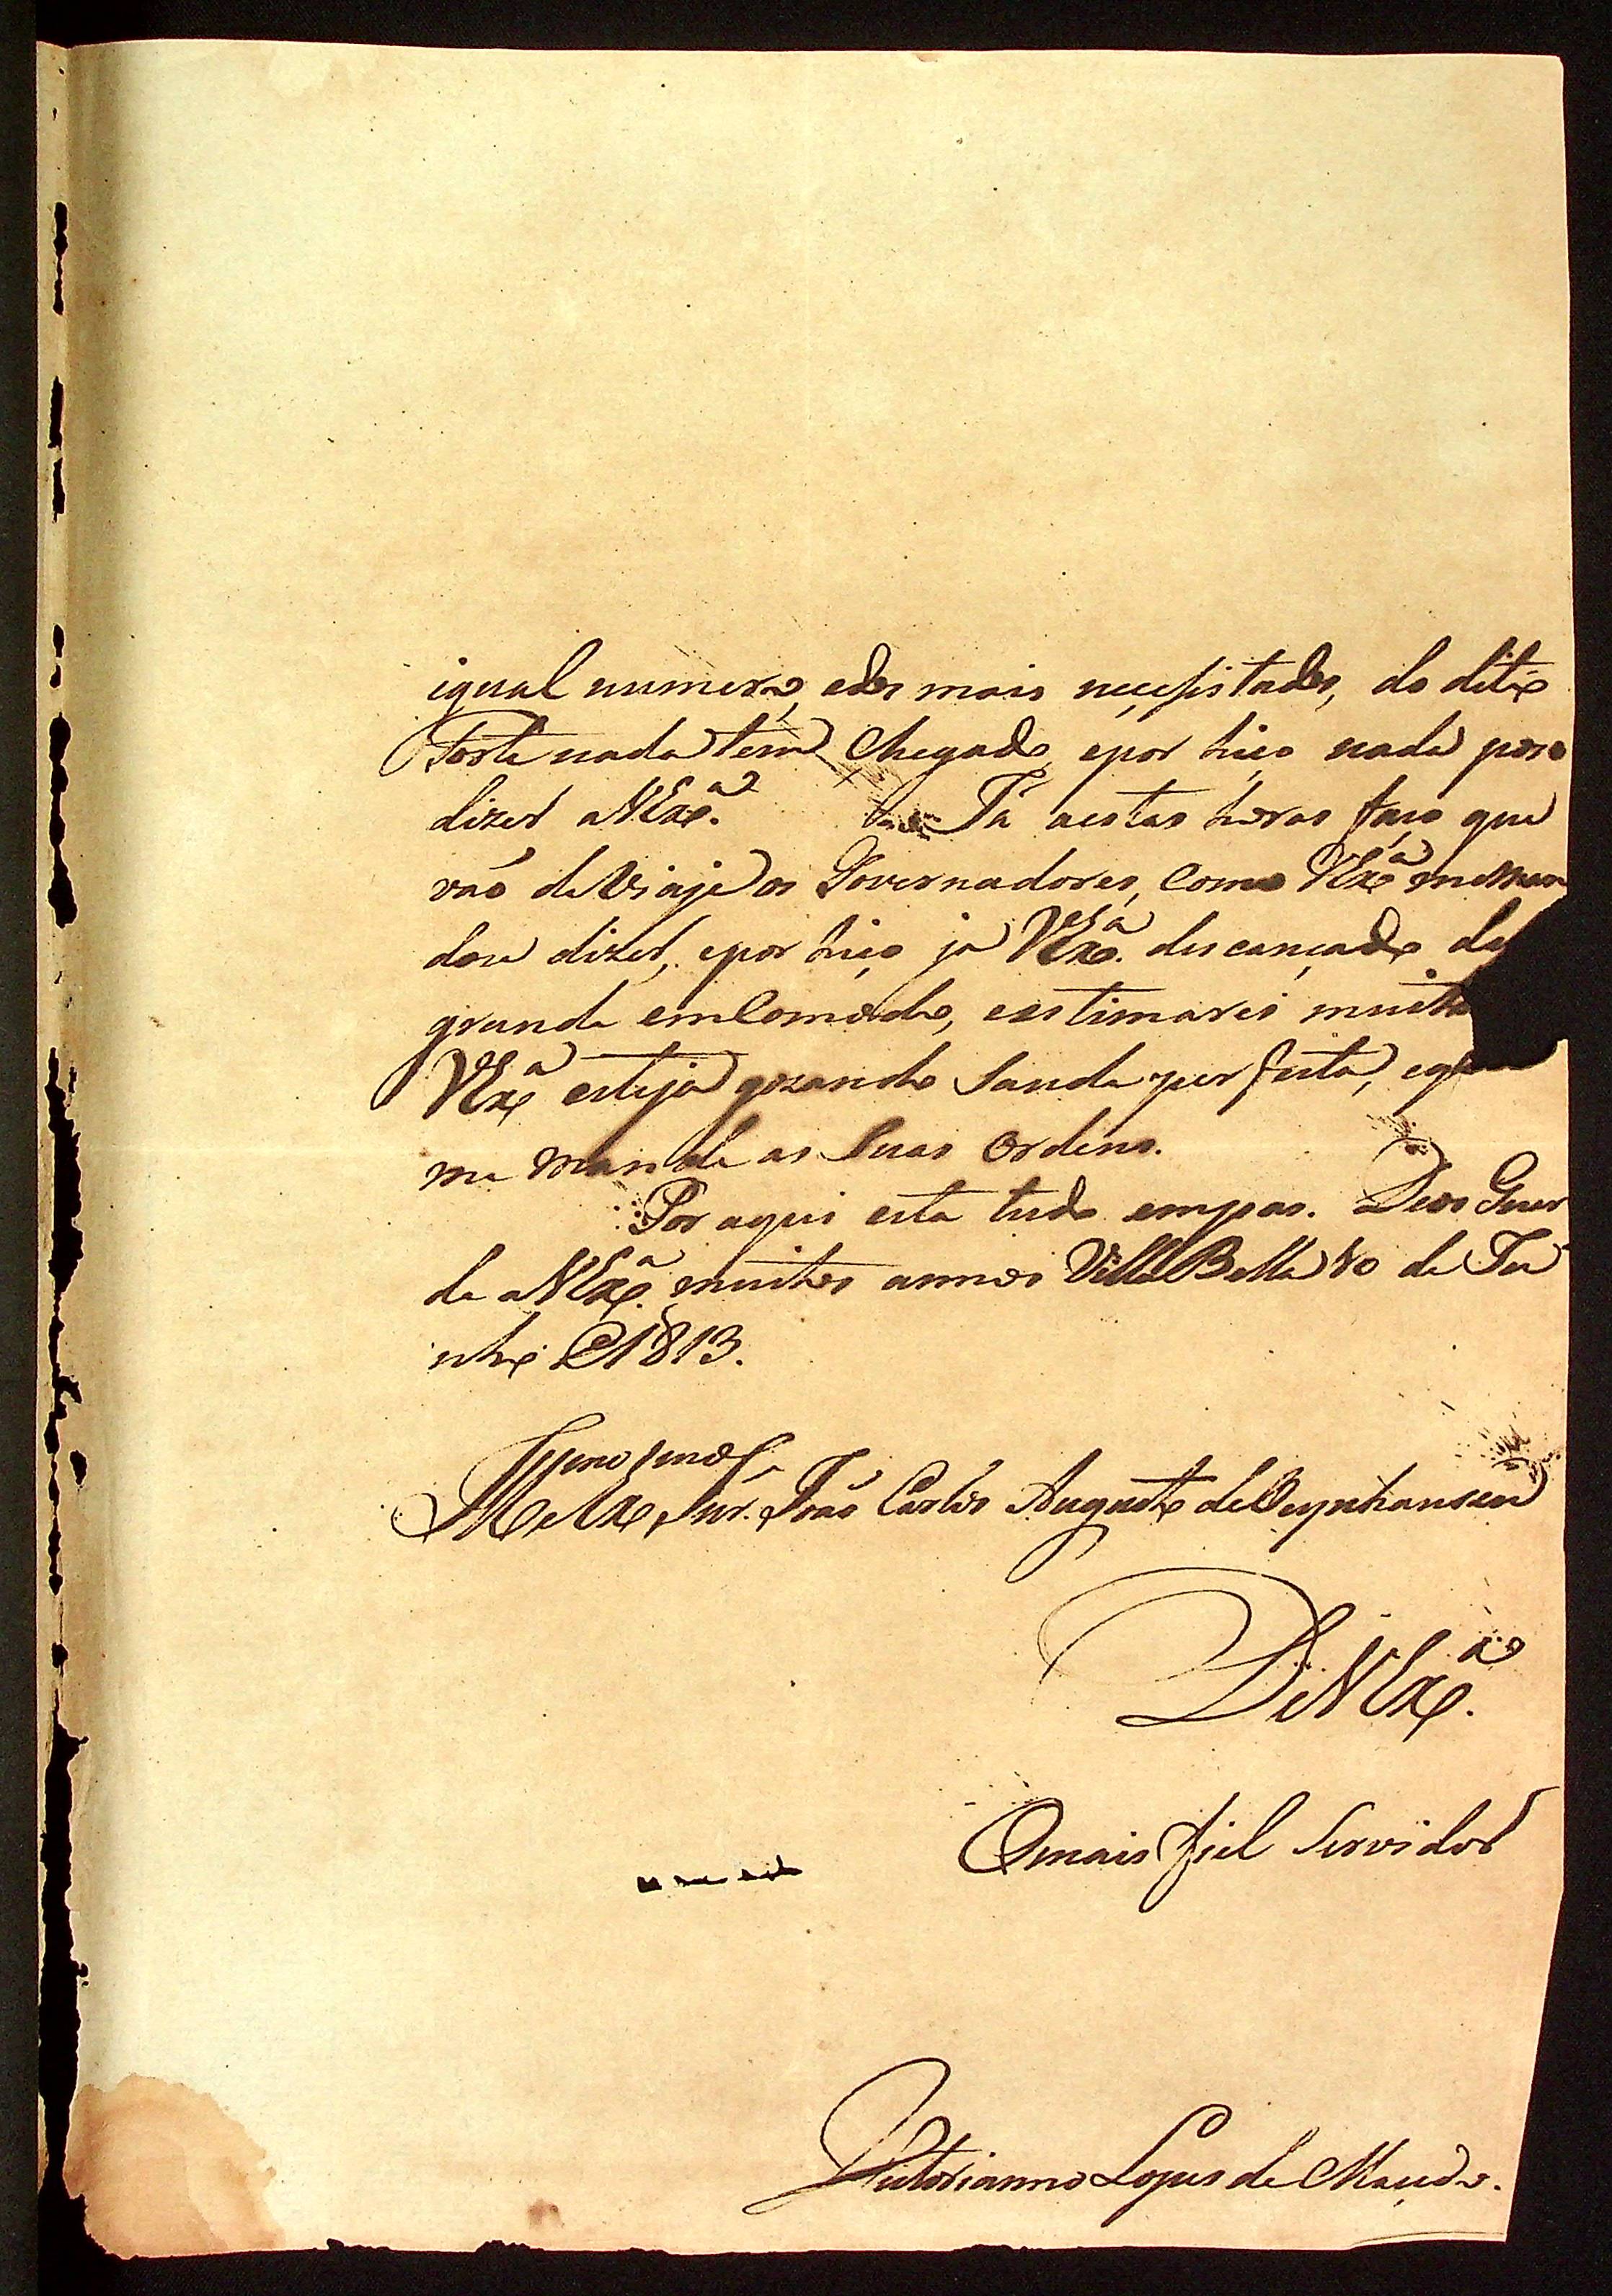 igual numero, edos mais neçessistados, do dito
Forte nada tem Chegado, epor hiço nada poso
dizer aVExª.
Já aestas horas faço que
vaó deViaje os Governadores, Como VExª me man
dou dizer, epor hiço já VExª. descançado de
grande emComodo, eestimarei muito
VExª esteja gozando Saude perfeita, eque
me mande as Suas Ordens.
Por aqui esta tudo empas. Deos Guar
de aVExª. muitos annos Villa Bella de Ju
nho 1813.
Illmo Exmo Snr. Joaó Carlos Augusto deOeynhausen
DeVExª.
Omais fiel Servidor
Victorianno Lopes de Maçedo.